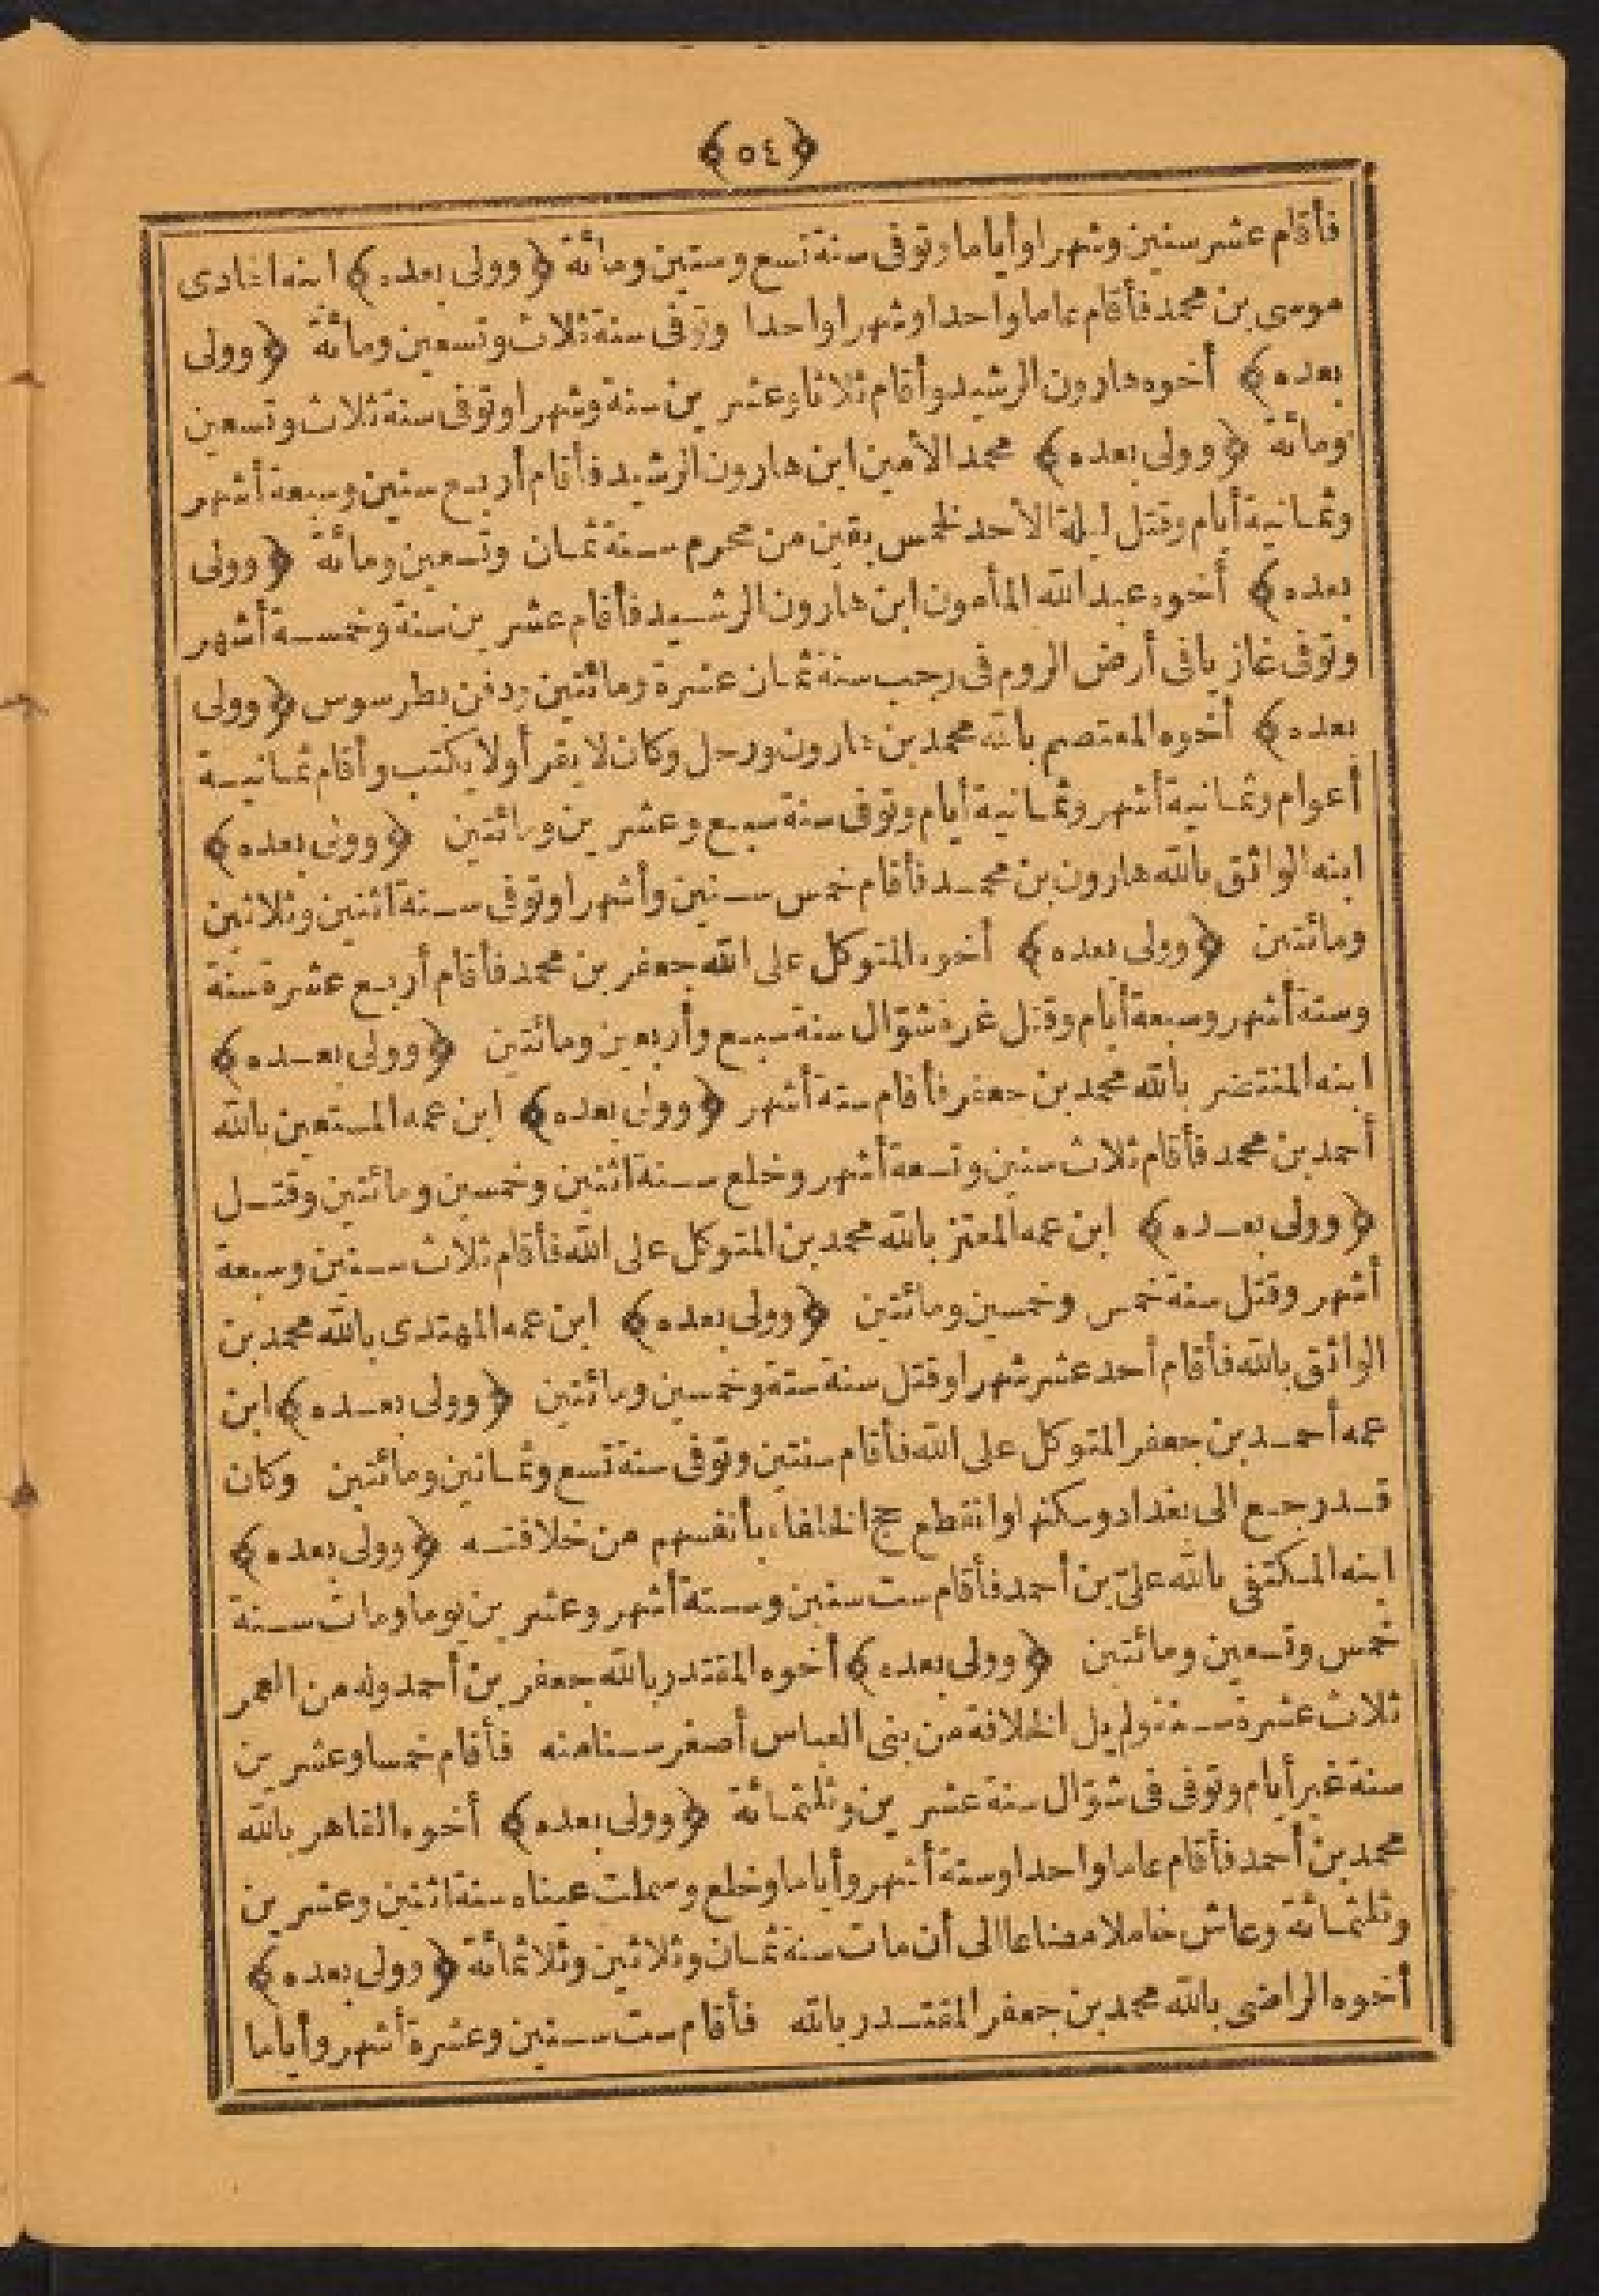 ﴿٥٤﴾
فأقام عشر سنين وشهرا وأياما وتوفى سنة تسع وستين ومائة ﴿وولى بعده﴾ ابنه الهادى
موسى بن محمد فأقام عاما واحدا وشهرا واحدا وتوفى سنة ثلاث وتسعين ومائة ﴿وولى
بعده﴾ أخوه هارون الرشيد وأقام ثلاثا وعشرين سنة وشهرا وتوفى سنة ثلاث وتسعين
ومائة ﴿وولى بعده﴾ محمد الأمين ابن هارون الرشيد فأقام أربع سنين وسبعة أشهر
وثمانية أيام وقتل ليلة الأحد لخمس بقين من محرم سنة ثمان وتسعين ومائة ﴿وولى
بعده﴾ أخوه عبد الله المأمون ابن هارون الرشيد فأقام عشرين سنة وخمسة أشهر
وتوفى غازيا فى أرض الروم فى رجب سنة ثمان عشرة ومائتين ودفن بطرسوس ﴿وولى
بعده﴾ أخوه المعتصم بالله محمد بن هارون ورحل وكان لا يقرأ ولا يكتب وأقام ثمانية
أعوام وثمانية أشهر وثمانية أيام وتوفى سنة سبع وعشرين ومائتين ﴿وولى بعده﴾
ابنه الواثق بالله هارون بن محمد فأقام خمس سنين وأشهرا وتوفى سنة اثنين وثلاثين
ومائتين ﴿وولى بعده﴾ أخوه المتوكل على الله جعفر بن محمد فأقام أربع عشرة سنة
وستة أشهر وسبعة أيام وقتل غرة شوّال سنة سبع وأربعين ومائتين ﴿وولى بعده﴾
ابنه المنتصر بالله محمد بن جعفر فأقام ستة أشهر ﴿وولى بعده﴾ ابن عمه المستعين بالله
أحمد بن محمد فأقام ثلاث سنين وتسعة أشهر وخلع سنة اثنتين وخمسين ومائتين وقتل
﴿وولى بعده﴾ ابن عمه المعتز بالله محمد بن المتوكل على الله فأقام ثلاث سنين وسبعة
أشهر وقتل سنة خمس وخمسين ومائتين ﴿وولى بعده﴾ ابن عمه المهتدى بالله محمد بن
الواثق بالله فأقام أحد عشر شهرا وقتل سنة ستة وخمسين ومائتين ﴿وولى بعده﴾ ابن
عمه أحمد بن جعفر المتوكل على الله فأقام سنتين وتوفى سنة تسع وثمانين ومائتين وكان
قد رجع الى بغداد وسكنها وانقطع حج الخلفاء بأنفسهم من خلافته ﴿وولى بعده﴾
ابنه المكتفى بالله علىّ بن أحمد فأقام ست سنين وستة أشهر وعشرين يوما ومات سنة
خمس وتسعين ومائتين ﴿وولى بعده﴾ أخوه المقتدر بالله جعفر بن أحمد وله من العمر
ثلاث عشرة سنة ولم يل الخلافة من بنى العباس أصغر سنا منه فأقام خمسا وعشرين
سنة غير أيام وتوفى فى شوّال سنة عشرين وثلثمائة ﴿وولى بعده﴾ أخوه القاهر بالله
محمد بن أحمد فأقام عاما واحدا وستة أشهر وأياما وخلع وسملت عيناه سنة اثنين وعشرين
وثلثمائة وعاش خاملا مضاعا الى أن مات سنة ثمان وثلاثين وثلاثمائة ﴿وولى بعده﴾
أخوه الراضى بالله محمد بن جعفر المقتدر بالله فأقام ست سنين وعشرة أشهر وأياما